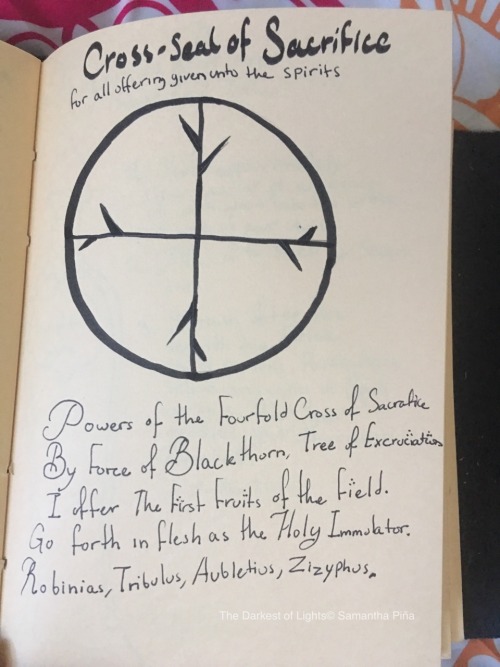 Cross-Seal of Sacrifice
for all offering given unto the spirits
Powers of the Fourfold Cross of Sacrafice
By Force of Blackthorn, Tree of Excruciation
I offer The First Fruits of the Field.
Go forth in flesh as the Holy Immolator.
Robinias, Tribulus, Aubletius, Zizyphus.
The Darkest of Lights© Samantha Piña